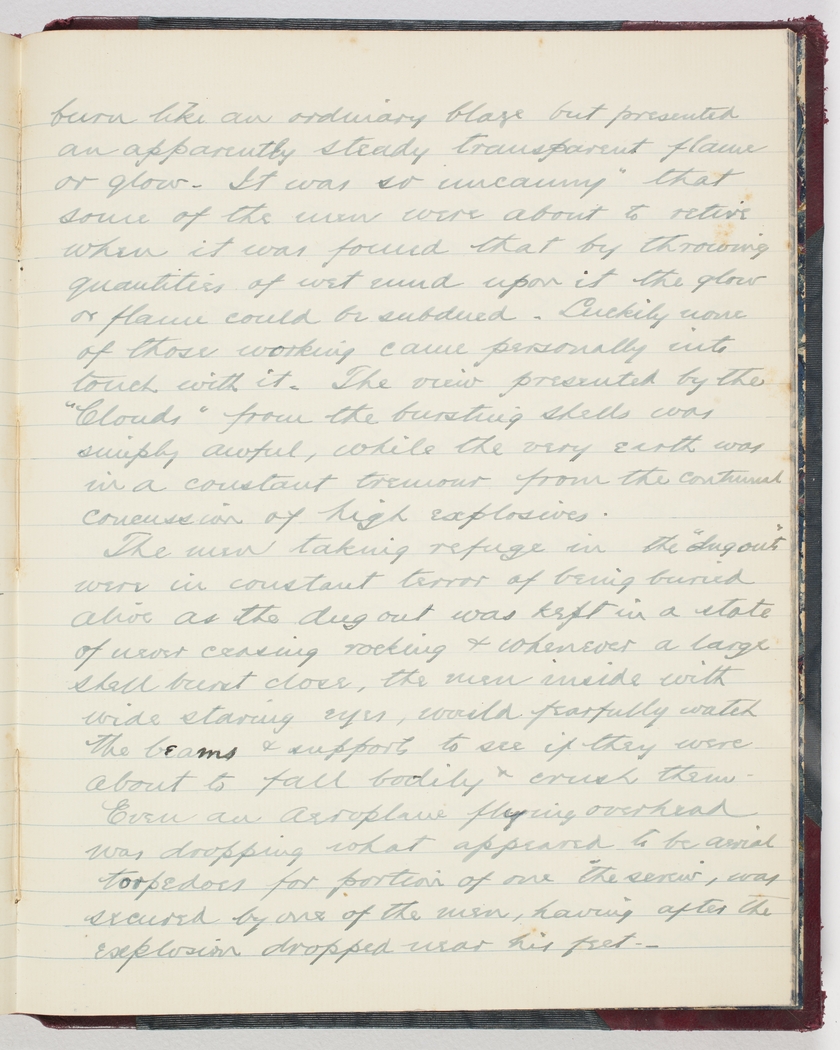 burn like an ordinary blaze but presented
an apparently steady transparent flame
or glow. It was so uncanny" that
some of the men were about to retire
when it was found that by throwing
quantities of wet mud upon it the glow
or flame could be subdued - Luckily none
of those working came personally into
touch with it. The view presented by the
"Clouds" from the bursting shells was
simply awful, while the very earth was
in a constant tremour from the continual
concussion of high explosives.
The men taking refuge in the "dug outs"
were in constant terror of being buried
alive as the dug out was kept in a state
of never ceasing rocking & whenever a large
shell burst close, the men inside with
wide staring eyes, would fearfully watch
the beams & support to see if they were
about to fall bodily & crush them.
Even an Aeroplane flying overhead
was dropping what appeared to be aerial
torpedoes for portion of one the screw, was
secured by one of the men, having after the
explosion dropped near his feet. -